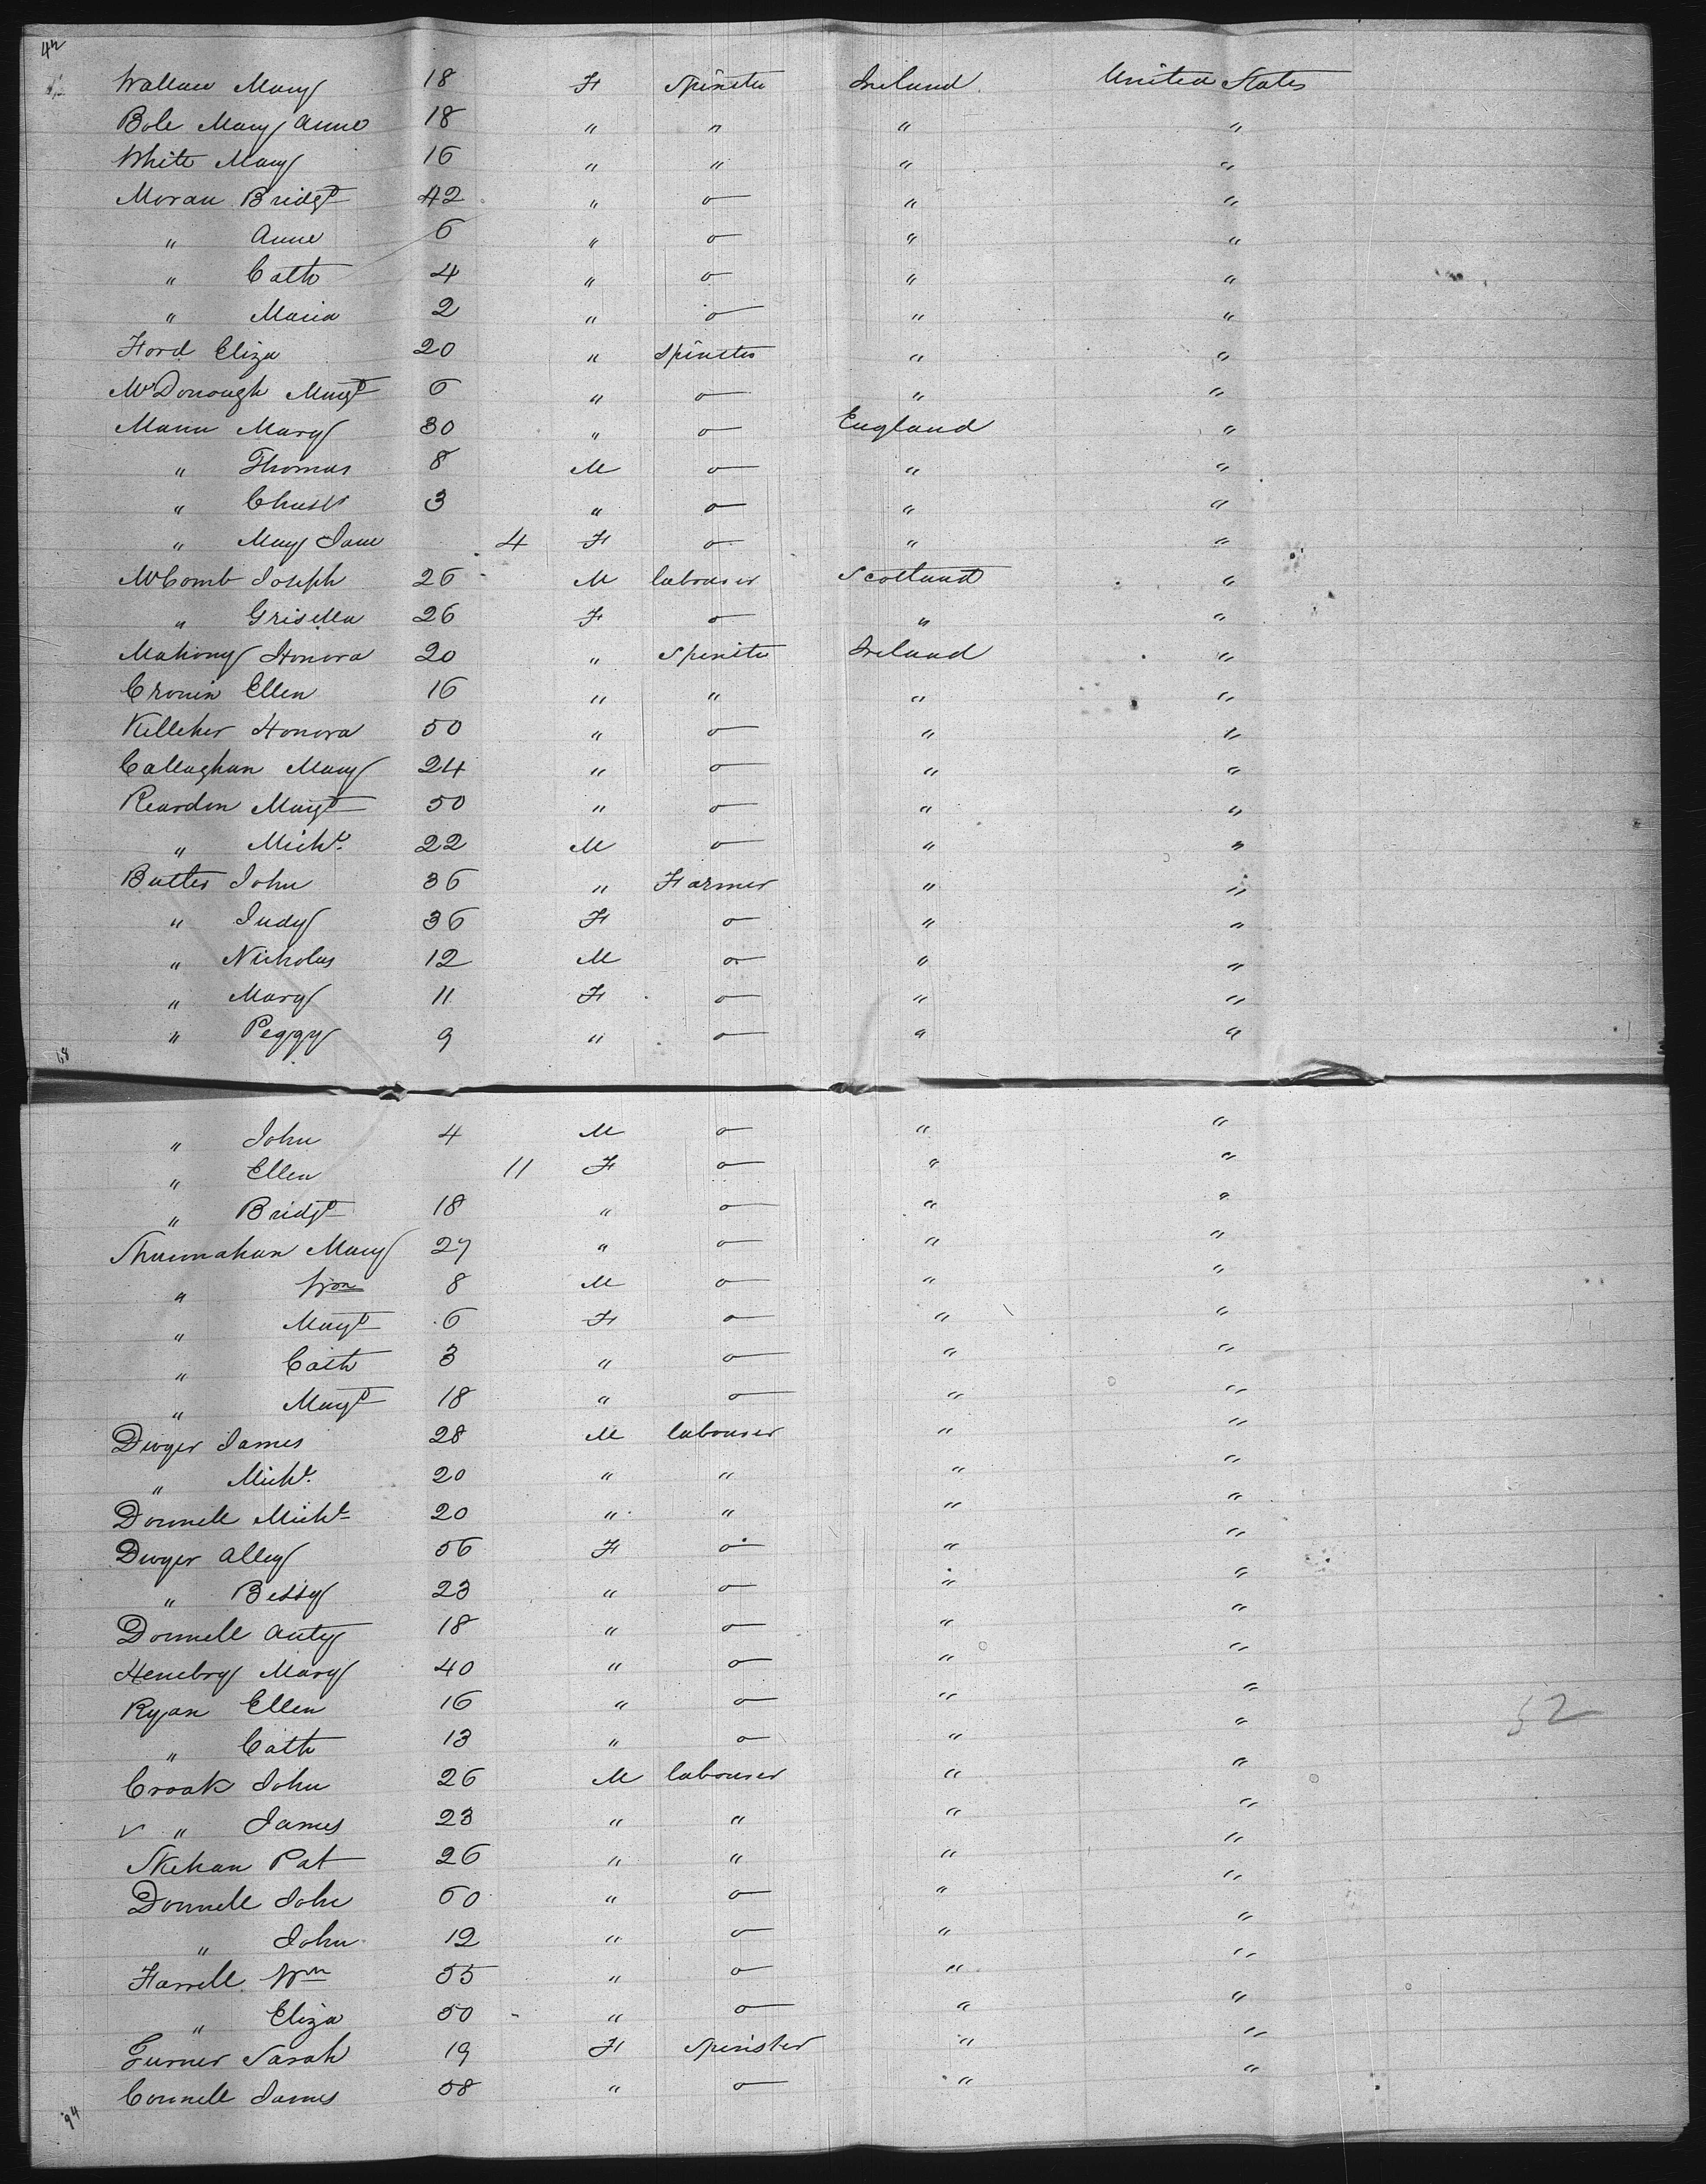 42
Wallace Mary 18 F Spinster Ireland United States
Bole Mary Anne 18 " " " "
White Mary 16 " " " "
Moran Bridgt 42 " o " "
" Anne 6 " o " "
" Cath 4 " o " "
" Maria 2 " o " "
Ford Eliza 20 " Spinster " "
McDonough Margt 6 " o " "
Mann Mary 30 " o England "
" Thomas 8 M o " "
" Chass 3 " o " "
" Mary Jane 4 F o " "
McComb Joseph 26 M labourer Scotland "
" Grisella 26 F o " "
Mahony Honora 20 " Spinster Ireland "
Cronin Ellen 16 " " " "
Kelleher Honora 50 " o " "
Callaghan Mary 24 " o " "
Reardon Margt 50 " o " "
" Michl. 22 M o " "
Butler John 36 " Farmer " "
" Judy 36 F o " "
" Nicholas 12 M o " "
" Mary 11 F o " "
" Peggy 9 " o " "
68
" John 4 M o " "
" Ellen 11 F o " "
" Bridgt 18 " o " "
Shannahan Mary 27 " o " "
" Wm 8 M o " "
" Margt 6 F o " "
" Cath 3 " o " "
" Margt 18 " o " "
Dwyer James 28 M labourer " "
" Michl. 20 " " " "
Donnell Michl 20 " " " "
Dwyer Alley 56 F o " "
" Betty 23 " o " "
Donnell Anty 18 " o " "
Henebry Mary 40 " o " "
Ryan Ellen 16 " o " "
" Cath 13 " o " "
52
Croak John 26 M labourer " "
" James 23 " " " "
Skehan Pat 26 " " " "
Donnell John 60 " o " "
" John 12 " o " "
Farrell Wm 55 " o " "
" Eliza 50 " o " "
Turner Sarah 19 F Spinster " "
Connell James 58 " o " "
94